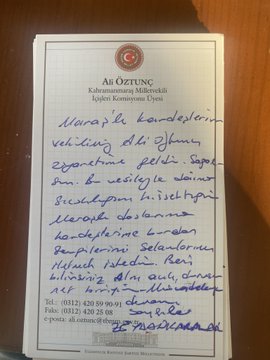 Ali ÖZTUNÇ
Kahramanmaraş Milletvekili
İçişleri Komisyonu Üyesi
Maraşlı kardeşlerim
vekilimiz Ali Öztunç
ziyaretime geldi. Sağol
sun. Bu vesileyle daima
hissettiğim
Maraşlı dostlarıma
kardeşlerime buradan
Sevgilerimi Selamlarımı
iletmek istedim. Beni
bilirsiniz Alnı açık,
Mücadeleye
devam
Saygılar
Tel.: (0312) 420 59 90-91
Faks: (0312) 420 25 08
e-posta: ali.oztunc@tbmm.gov.tr